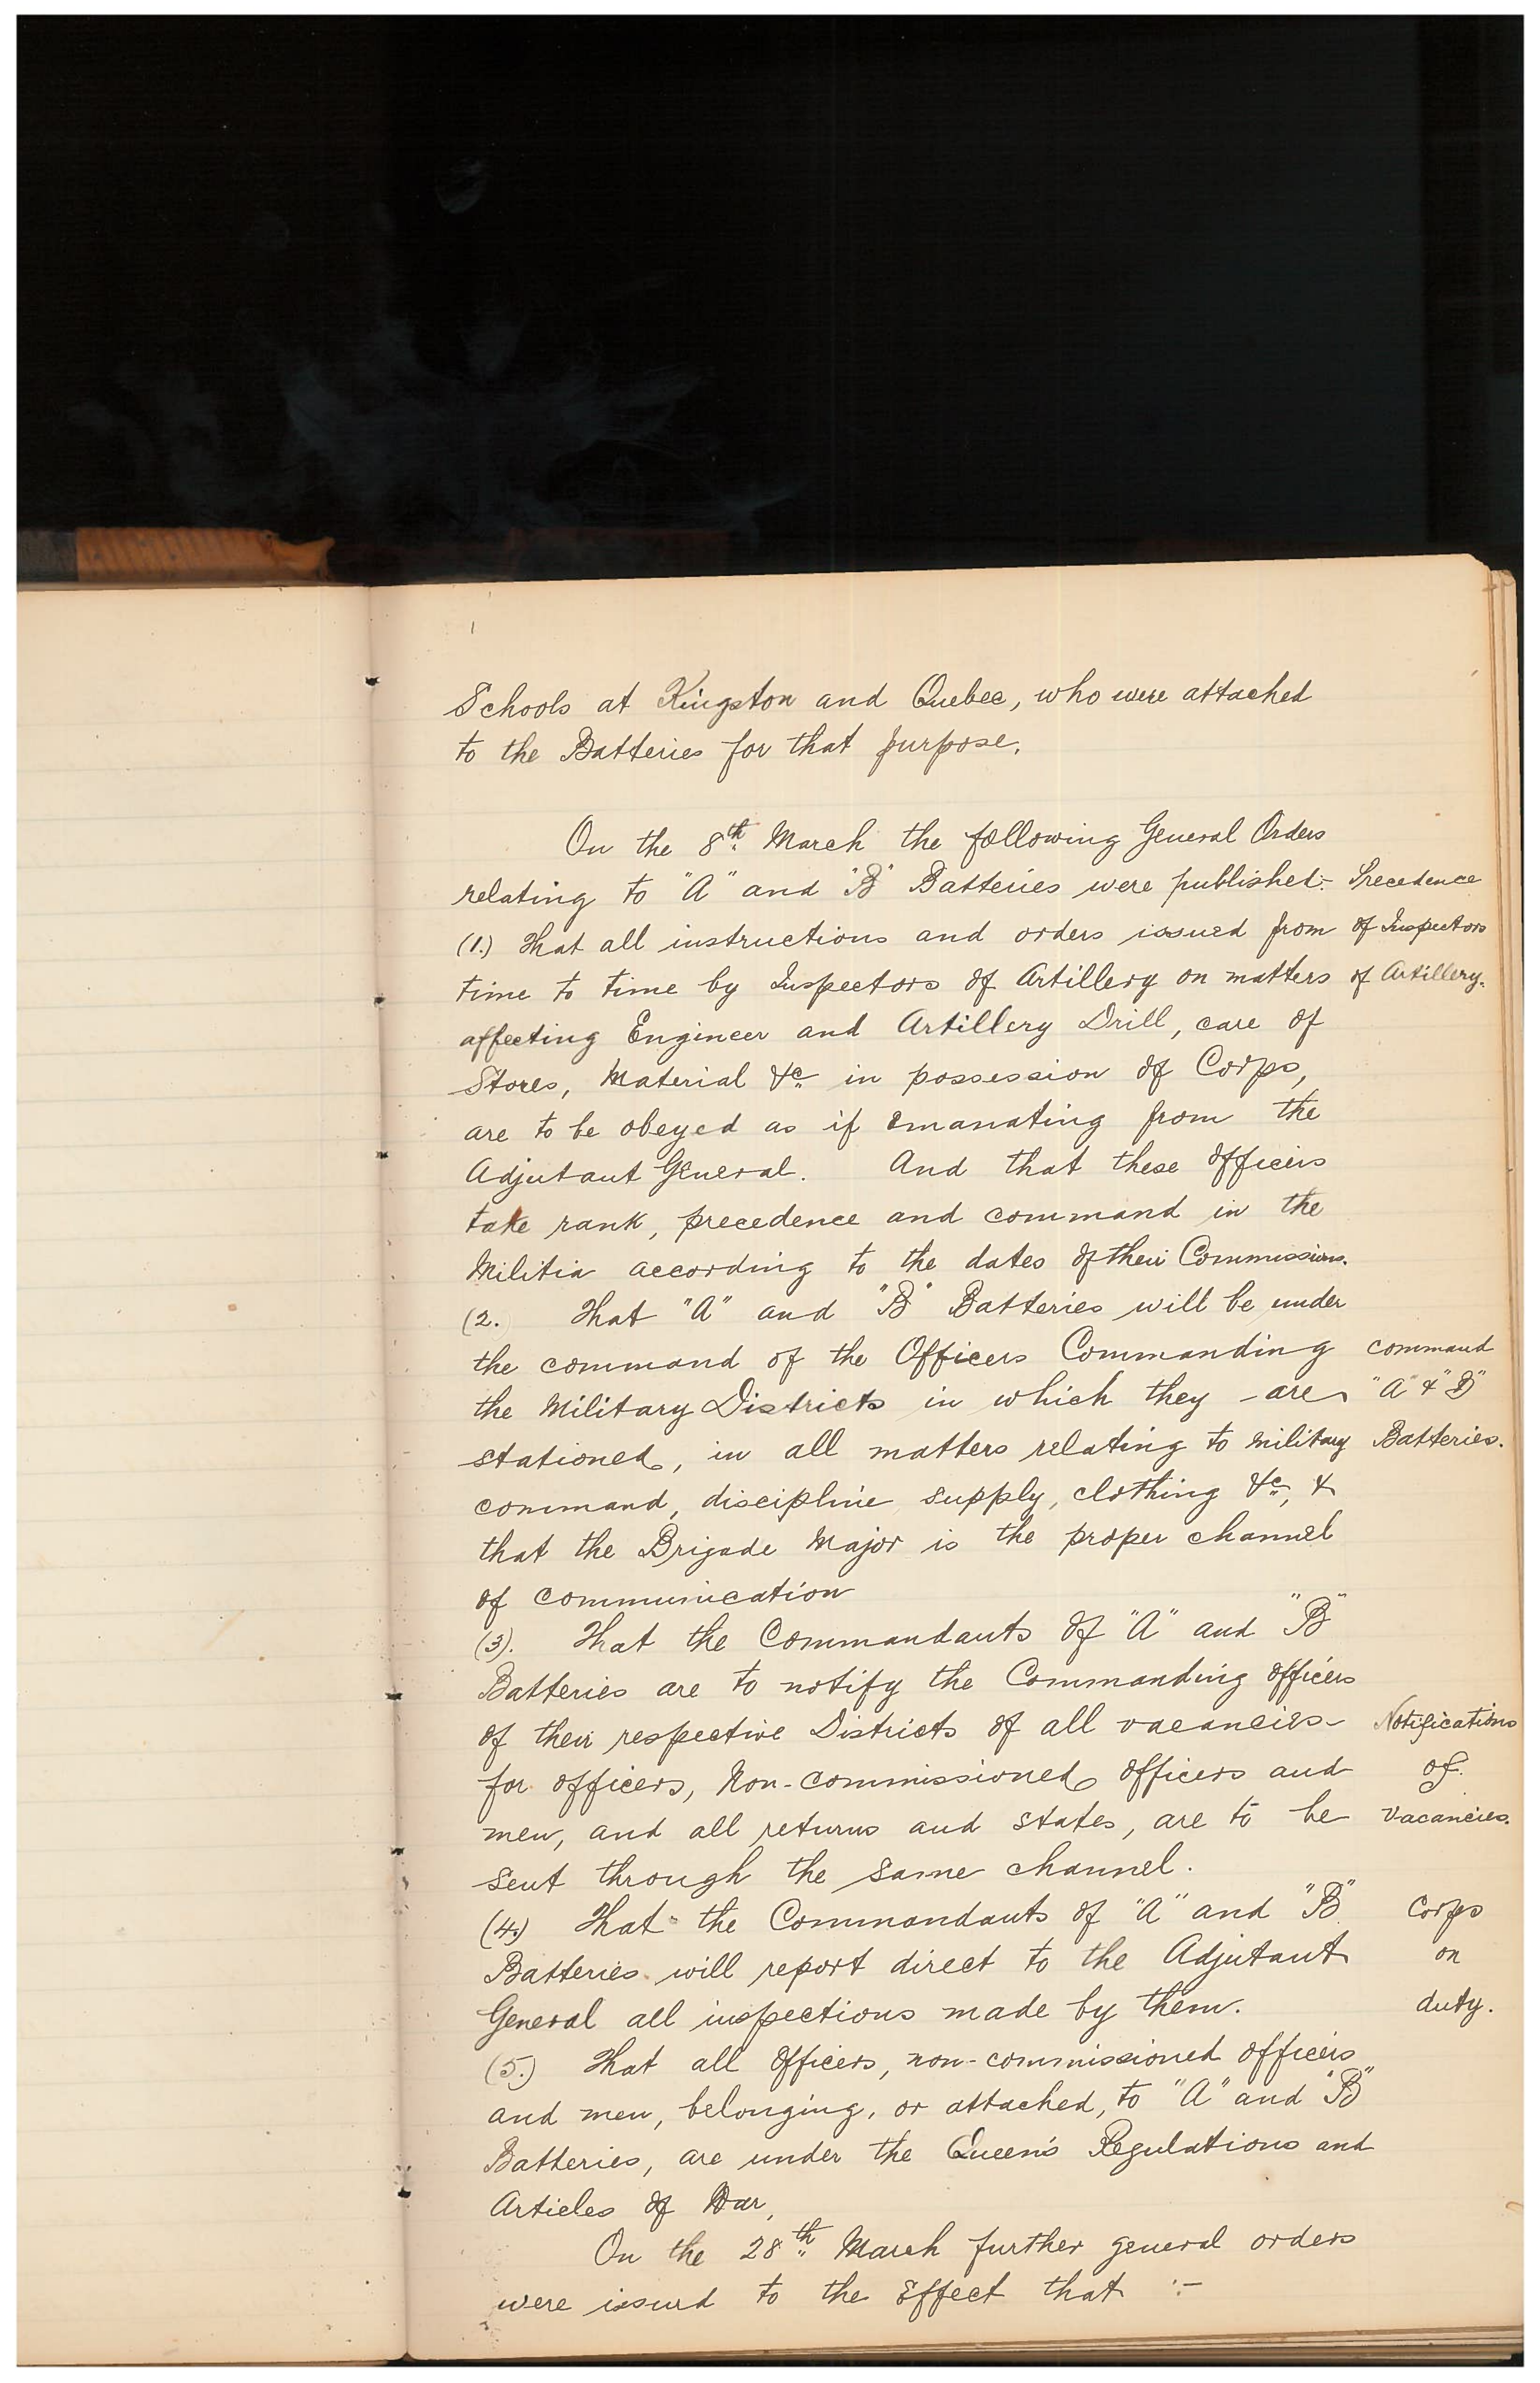 Schools at Kingston and Quebec, who were attached
to the Batteries for that purpose.
On the 8th March the following General Orders
relating to "A" and "B" Batteries were published:- Precedence
(1.) That all instructions and orders issued from of Inspectors
time to time by Inspectors of Artillery on matters of Artillery.
affecting Engineer and Artillery Drill, care of
Stores, Material &c in possession of Corps,
are to be obeyed as if emanating from the
Adjutant General. And that these officers
take rank, precedence and command in the
Militia according to the dates of their Commissions.
(2. That "A" and "B" Batteries will be under
the command of the Officers Commanding command
the Military Districts in which they are "A" & "B"
stationed, in all matters relating to military Batteries.
command, discipline supply, clothing &c, &
that the Brigade Major is the proper channel
of communication
(3). That the Commandants of "A" and "B"
Batteries are to notify the Commanding officers
of their respective Districts of all vacancies Notifications
for officers, Non-commissioned officers and of
men, and all returns and states, are to be vacancies.
sent through the same channel.
(4.) That the Commandants of "A" and "B" Corps
Batteries will report direct to the Adjutant on
General all inspections made by them. duty.
(5.) That all officers, non-commissioned officers
and men, belonging, or attached, to "A" and "B"
Batteries, are under the Queen's Regulations and
Articles of War,
On the 28th March further general orders
were issued to the Effect that :-